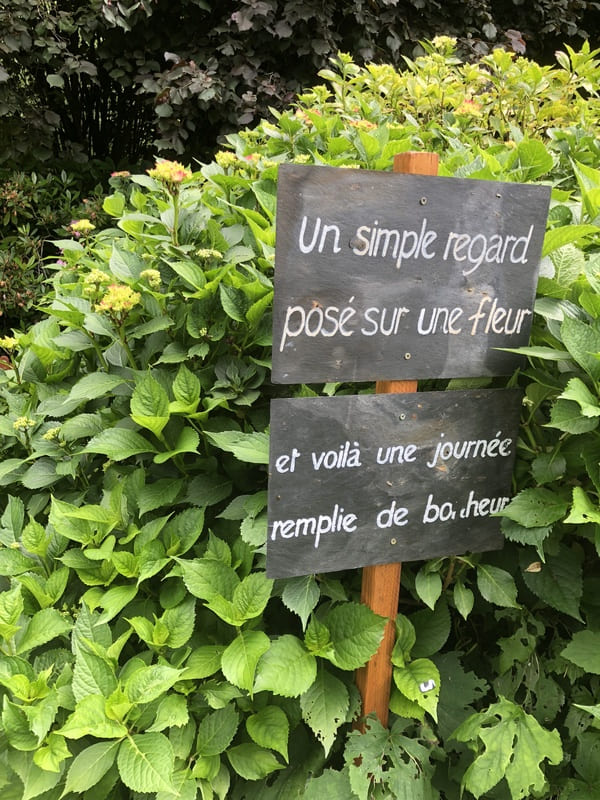 Un simple regard
posé sur une fleur
et voilà une journée
remplie de bonheur